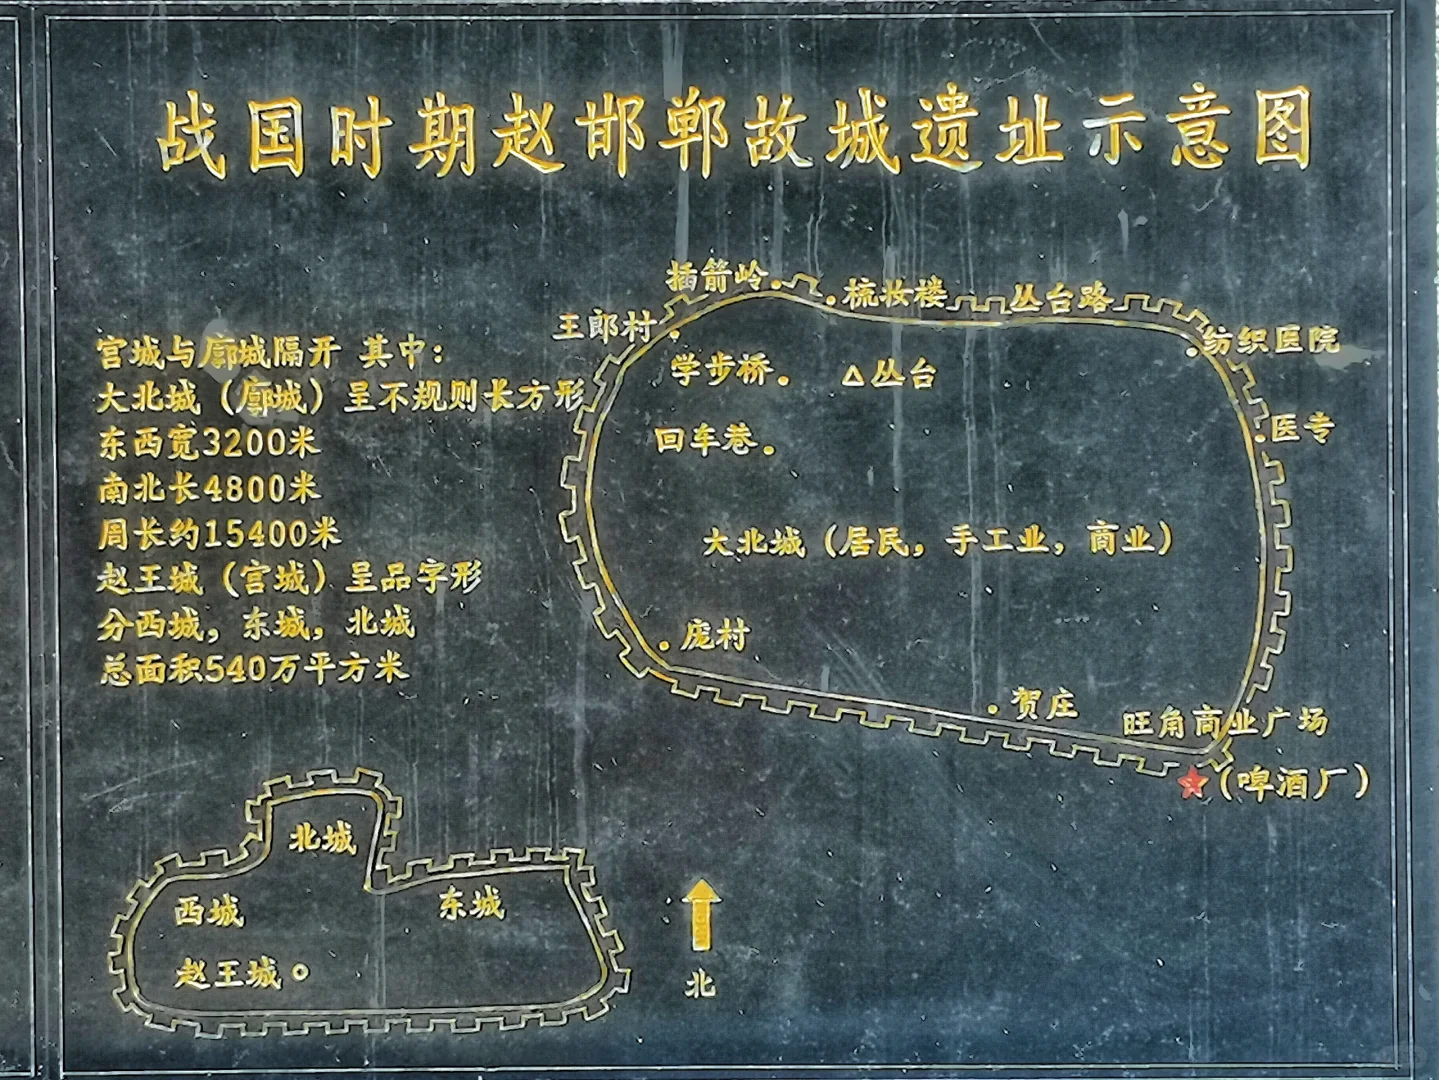 战国时期赵邯郸故城遗址示意图
宫城与廓城隔开 其中：
大北城（廓城）呈不规则长方形
东西宽3200米
南北长4800米
周长约15400米
赵王城（宫城）呈品字形
分西城，东城，北城
总面积540万平方米
插箭岭
梳妆楼
丛台路
王郎村
纺织医院
学步桥
丛台
医专
回车巷
大北城（居民，手工业，商业）
庞村
贺庄
旺角商业广场
（啤酒厂）
北城
西城
东城
赵王城
北